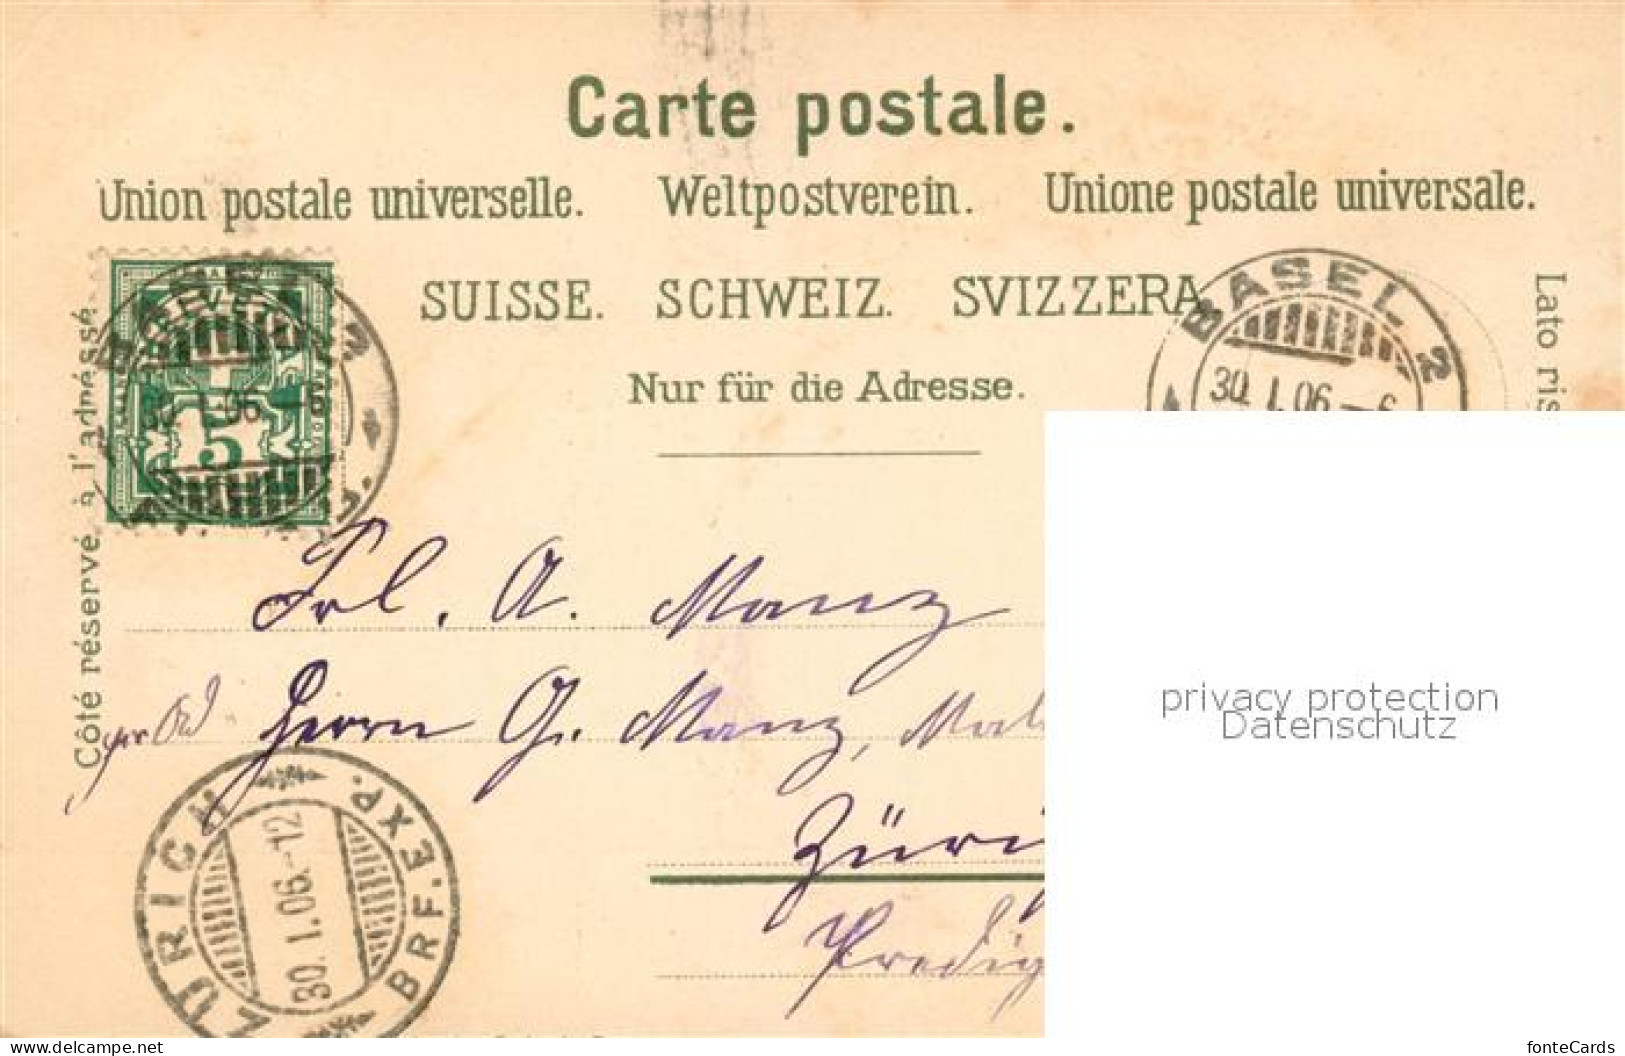 Carte postale.
Union postale universelle. Weltpostverein. Unione postale universale.
SUISSE. SCHWEIZ. SVIZZERA
Nur für die Adresse.
Côté réservé à l'adresse.
Lato ris
BASEL 2
30. I. 06 – 6
BASEL 2
I. 06
5
Frl. A. Manz
Herrn G. Manz, Mal
Züri
Predig
ZÜRICH BRF.EXP.
30. I. 06.-12
privacy protection
Datenschutz
www.delcampe.net
fonteCards